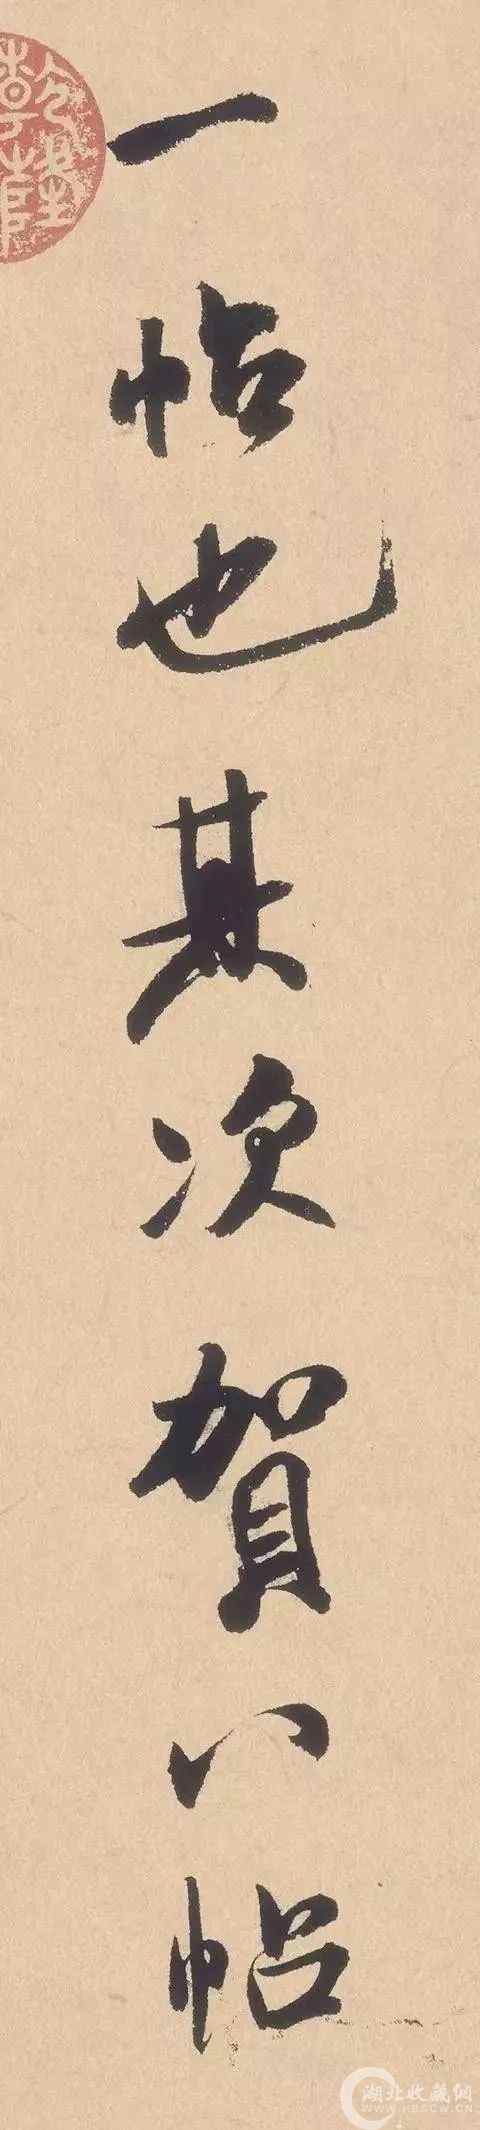 一帖也其次賀八帖
湖北收藏网
WWW.HBSCW.CN